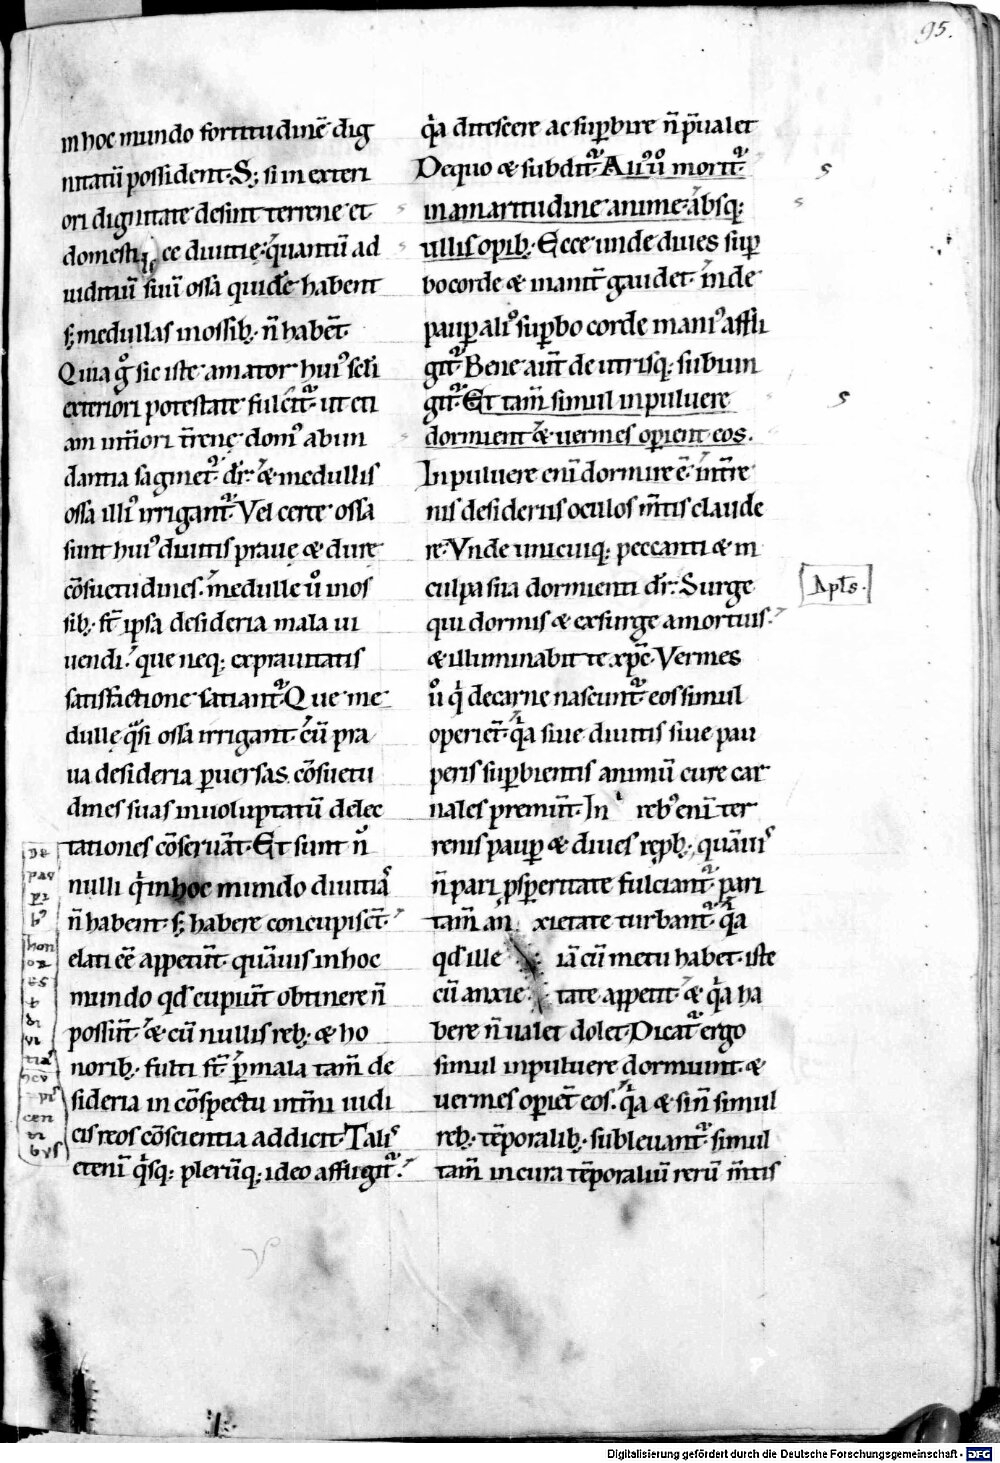 95.
in hoc mundo fortitudinē dig
nitatū possident. S; si in exteri
ori dignitate desint terrene et
domesticę ce diuitię. quantū ad
uiditiuū suiū ossa quidē habent
s; medullas in ossib; n̄ habēt
Quia g̊ sic iste amator hui᷒ scl̄i
exteriori potestate fulcit᷑. ut eti
am int̄iori t̄rene dom᷒ abun
dantia saginet᷑. dr̄. & medullis
ossa illi᷒ irrigant᷑. Vel certe ossa
sunt hui᷒ diuitis prauę & dure
cōsuetudines. medulle ů in os
sib; st̄ ipsa desideria mala ui
uendi. que neq; ex prauitatis
satisfactione satiant᷑. Que me
dulle q̄si ossa irrigant. cū pra
ua desideria ꝑuersas cōsuetu
dines suas in uoluptatū delec
tationes cōseruāt. Et sunt n̊
nulli qui in hoc mundo diuitias
n̄ habent. s; habere concupisct̄.
elati eē appetunt̄. quāuis in hoc
mundo qd̄ cupiūt obtinere n̄
possint̄. & cū nullis reb; & ho
norib; fulti st̄. ꝑ mala tam̄ de
sideria in cōspectu int̄ni iudi
cis reos cōscientia addicit. Talis
eteni quisq; plerūq; ideo affligit᷑.
DE
PAV
PI
b᷒
hon
OR
ES
&
DI
VI
TIAS
NCV
PIS
CEN
TI
BVS
quia ditescere ac suꝑbire n̄ p̄ualet
De quo & subdit᷑. Ali᷒ ů morit᷑
in amaritudine anime absq;
ullis opib;. Ecce unde diues suꝑ
bo corde & inanit̄ gaudet. inde
pauꝑ ali᷒ suꝑbo corde inani᷒ affli
git᷑. Bene aut̄ de utrisq; subiun
git᷑. Et tam̄ simul in puluere
dormient & uermes opient eos.
In puluere eni dormire ē. in t̄re
nis desideriis oculos m̄tis claude
re. Vnde unicuiq; peccanti & in
culpa sua dormienti dr̄. Surge
qui dormis & exsurge a mortuis.
& illuminabit te xp̄c. Vermes
ů qui de carne nascunt᷑. eos simul
operiet̄. quia siue diuitis siue pau
peris suꝑbientis animū cure car
nales premunt̄. In reb᷒ enī ter
renis pauꝑ & diues rep̄b; quāuis
n̄ pari ꝓsꝑitate fulciant᷑. pari
tam̄ anxietate turbant᷑. quia
qd̄ ille iā cū metu habet. iste
cū anxietate appetit. & quia ha
bere n̄ ualet dolet. Dicat᷑ ergo
simul in puluere dormiunt. &
uermes opiet̄ eos. quia & si n̄ simul
reb; tēporalib; subleuant᷑. simul
tam̄ in cura tēporaliū rerū m̄tis
Apl̄s.
Digitalisierung gefördert durch die Deutsche Forschungsgemeinschaft - DFG